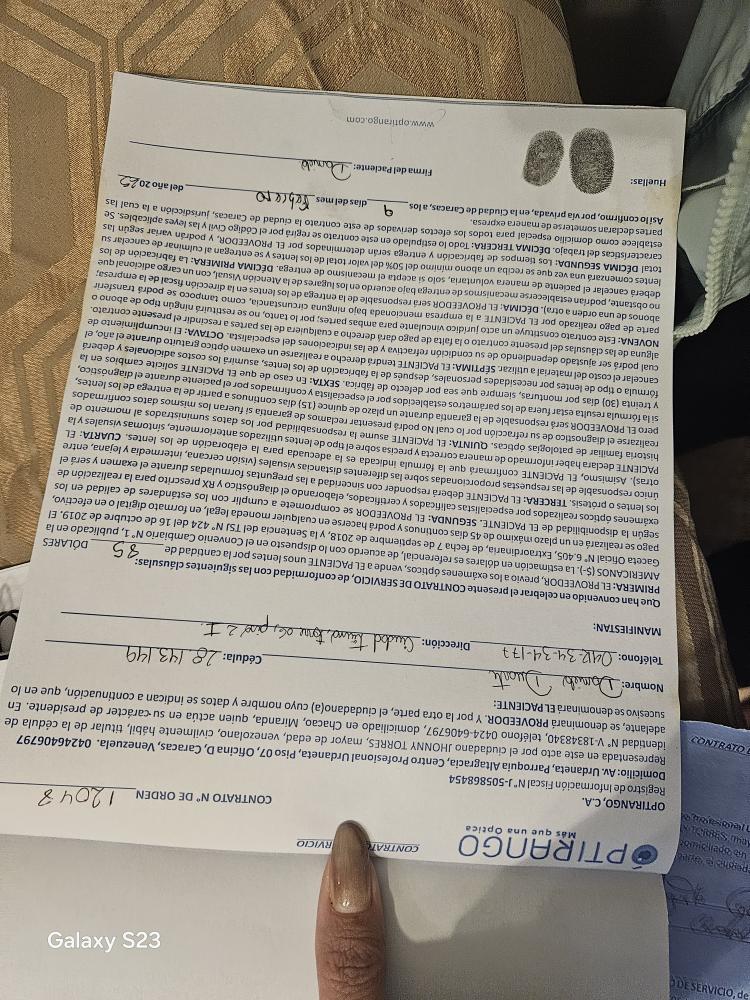 OPTIRANGO
Más que una Optica
CONTRATO
RVICIO
CONTRATO N° DE ORDEN 12048
OPTIRANGO, C.A.
Registro de Información Fiscal N° J-505868454
Domicilio: Av. Urdaneta, Parroquia Altagracia, Centro Profesional Urdaneta, Piso 07, Oficina D, Caracas, Venezuela. 04246406797
Representada en este acto por el ciudadano JHONNY TORRES, mayor de edad, venezolano, civilmente hábil, titular de la cédula de
identidad N° V-18348340, teléfono 0424-6406797, domiciliado en Chacao, Miranda, quien actúa en su carácter de presidente. En
adelante, se denominará PROVEEDOR. Y por la otra parte, el ciudadano(a) cuyo nombre y datos se indican a continuación, que en lo
sucesivo se denominará EL PACIENTE:
Nombre: Daniela Duarte Cédula: 28.143.149
Teléfono: 0412-34-34-177 Dirección: Ciudad
MANIFIESTAN:
Que han convenido en celebrar el presente CONTRATO DE SERVICIO, de conformidad con las siguientes cláusulas:
PRIMERA: EL PROVEEDOR, previo a los exámenes ópticos, vende a EL PACIENTE unos lentes por la cantidad de 35 DÓLARES
AMERICANOS ($-). La estimación en dólares es referencial, de acuerdo con lo dispuesto en el Convenio Cambiario N° 1, publicado en la
Gaceta Oficial N° 6.405, Extraordinaria, de fecha 7 de septiembre de 2018, y la Sentencia del TSJ N° 424 del 16 de octubre de 2019. El
pago se realizará en un plazo máximo de 45 días continuos y podrá hacerse en cualquier moneda legal, en formato digital o en efectivo,
según la disponibilidad de EL PACIENTE. SEGUNDA: EL PROVEEDOR se compromete a cumplir con los estándares de calidad en los
exámenes ópticos realizados por especialistas calificados y certificados, elaborando el diagnóstico y RX prescrito para la realización de
los lentes o prótesis. TERCERA: EL PACIENTE deberá responder con sinceridad a las preguntas formuladas durante el examen y será el
único responsable de las respuestas proporcionadas sobre las diferentes distancias visuales (visión cercana, intermedia y lejana, entre
otras). Asimismo, EL PACIENTE confirmará que la fórmula indicada es la adecuada para la elaboración de los lentes. CUARTA: EL
PACIENTE declara haber informado de manera correcta y precisa sobre el tipo de lentes utilizados anteriormente, síntomas visuales y la
historia familiar de patologías ópticas. QUINTA: EL PACIENTE asume la responsabilidad por los datos suministrados al momento de
realizarse el diagnóstico de su refracción por lo cual No podrá presentar reclamos de garantía si fueran los mismos datos confirmados
pero EL PROVEEDOR será responsable de la garantía durante un plazo de quince (15) días continuos a partir de la entrega de los lentes,
si la fórmula resulta estar fuera de los parámetros establecidos por el especialista y confirmados por el paciente durante el diagnóstico,
y treinta (30) días por monturas, siempre que sea por defecto de fábrica. SEXTA: En caso de que EL PACIENTE solicite cambios en la
fórmula o tipo de lentes por necesidades personales, después de la fabricación de los lentes, asumirá los costos adicionales y deberá
cancelar el costo del material a utilizar. SÉPTIMA: EL PACIENTE tendrá derecho a realizarse un examen óptico gratuito durante el año, el
cual podrá ser ajustado dependiendo de su condición refractiva y de las indicaciones del especialista. OCTAVA: El incumplimiento de
alguna de las cláusulas del presente contrato o la falta de pago dará derecho a cualquiera de las partes a rescindir el presente contrato.
NOVENA: Este contrato constituye un acto jurídico vinculante para ambas partes; por lo tanto, no se restituirá ningún tipo de abono o
parte de pago realizado por EL PACIENTE a la empresa mencionada bajo ninguna circunstancia, como tampoco se podrá transferir
abonos de una orden a otra). DÉCIMA: EL PROVEEDOR será responsable de la entrega de los lentes en la dirección fiscal de la empresa;
no obstante, podrían establecerse mecanismos de entrega bajo acuerdo en los lugares de la Atención Visual, con un cargo adicional que
deberá cancelar el paciente de manera voluntaria, solo si acepta el mecanismo de entrega. DÉCIMA PRIMERA: La fabricación de los
lentes comenzará una vez que se reciba un abono mínimo del 50% del valor total de los lentes y se entregan al culminar de cancelar su
total DÉCIMA SEGUNDA: Los tiempos de fabricación y entrega serán determinados por EL PROVEEDOR, y podrán variar según las
características del trabajo. DÉCIMA TERCERA: Todo lo estipulado en este contrato se regirá por el Código Civil y las leyes aplicables. Se
establece como domicilio especial para todos los efectos derivados de este contrato la ciudad de Caracas, jurisdicción a la cual las
partes declaran someterse de manera expresa.
Así lo confirmo, por vía privada, en la Ciudad de Caracas, a los 9 días del mes Febrero del año 20
Huellas:
Firma del Paciente: Daniela
www.optirango.com
CONTRATO D
DE SERVICIO, de
Galaxy S23